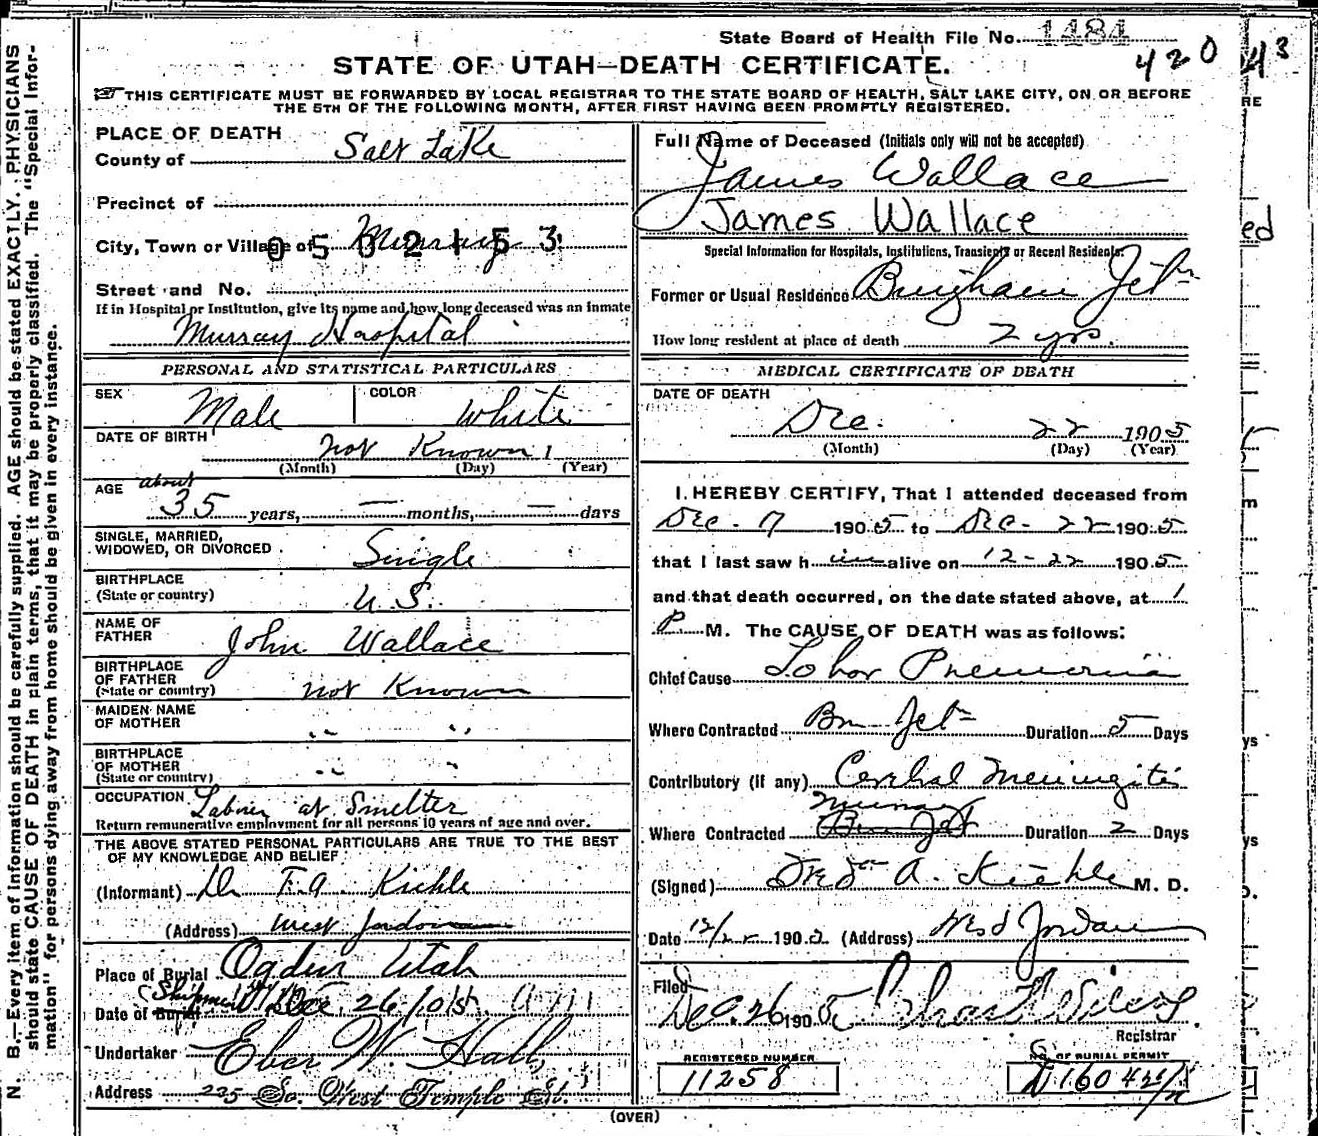 State Board of Health File No. 1484
420 43
STATE OF UTAH—DEATH CERTIFICATE.
THIS CERTIFICATE MUST BE FORWARDED BY LOCAL REGISTRAR TO THE STATE BOARD OF HEALTH, SALT LAKE CITY, ON OR BEFORE
THE 5TH OF THE FOLLOWING MONTH, AFTER FIRST HAVING BEEN PROMPTLY REGISTERED.
N. B.—Every item of information should be carefully supplied. AGE should be stated EXACTLY. PHYSICIANS
should state CAUSE OF DEATH in plain terms, that it may be properly classified. The "Special Infor-
mation" for persons dying away from home should be given in every instance.
PLACE OF DEATH
County of Salt Lake
Precinct of
City, Town or Village of Murray
0502153
Street and No.
If in Hospital or Institution, give its name and how long deceased was an inmate
Murray Hospital
PERSONAL AND STATISTICAL PARTICULARS
SEX Male COLOR White
DATE OF BIRTH not Known
(Month) (Day) (Year)
AGE about
35 years, — months, — days
SINGLE, MARRIED,
WIDOWED, OR DIVORCED Single
BIRTHPLACE
(State or country) U.S.
NAME OF
FATHER John Wallace
BIRTHPLACE
OF FATHER
(State or country) not Known
MAIDEN NAME
OF MOTHER " "
BIRTHPLACE
OF MOTHER
(State or country) " "
OCCUPATION Laborer at Smelter
Return remunerative employment for all persons 10 years of age and over.
THE ABOVE STATED PERSONAL PARTICULARS ARE TRUE TO THE BEST
OF MY KNOWLEDGE AND BELIEF
(Informant) Dr F.A. Kiehle
(Address) West Jordan
Place of Burial Ogden Utah
Shipment
Date of Burial Dec. 26 1905
Undertaker Eber W. Hall
Address 235 So. West Temple St.
Full Name of Deceased (Initials only will not be accepted)
James Wallace
James Wallace
Special Information for Hospitals, Institutions, Transients or Recent Residents.
Former or Usual Residence Bingham Jct
How long resident at place of death 2 yrs.
MEDICAL CERTIFICATE OF DEATH
DATE OF DEATH
Dec. 22 1905
(Month) (Day) (Year)
I HEREBY CERTIFY, That I attended deceased from
Dec. 7 1905 to Dec. 22 1905
that I last saw him alive on 12-22 1905
and that death occurred, on the date stated above, at 1
P. M. The CAUSE OF DEATH was as follows:
Chief Cause Lobar Pneumonia
Where Contracted Bm Jct Duration 5 Days
Contributory (if any) Cerebral Meningitis
Murray
Where Contracted Bm Jct Duration 2 Days
(Signed) A. Kiehle M. D.
Date 12/22 1905 (Address) West Jordan
Filed
Dec. 26 1905
Registrar
REGISTERED NUMBER
11258
No. OF BURIAL PERMIT
(OVER)